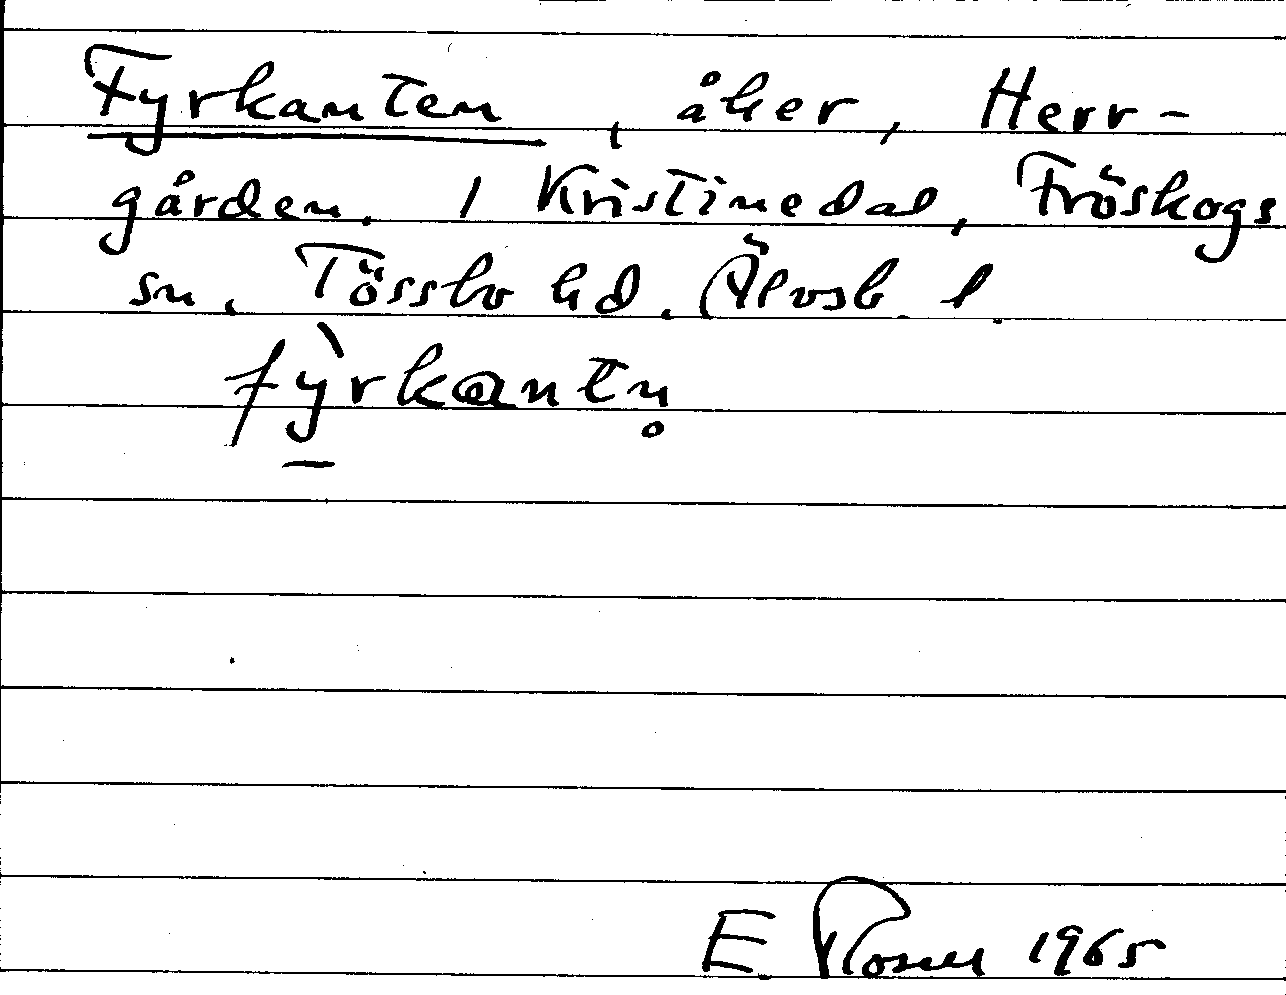 Fyrkanten, åker, Herr-
gården. 1 Kristinedal, Fröskogs
sn. Tössbo hd. Älvsb. l.
fỳ̠rkantn̥
E. Rosell 1965